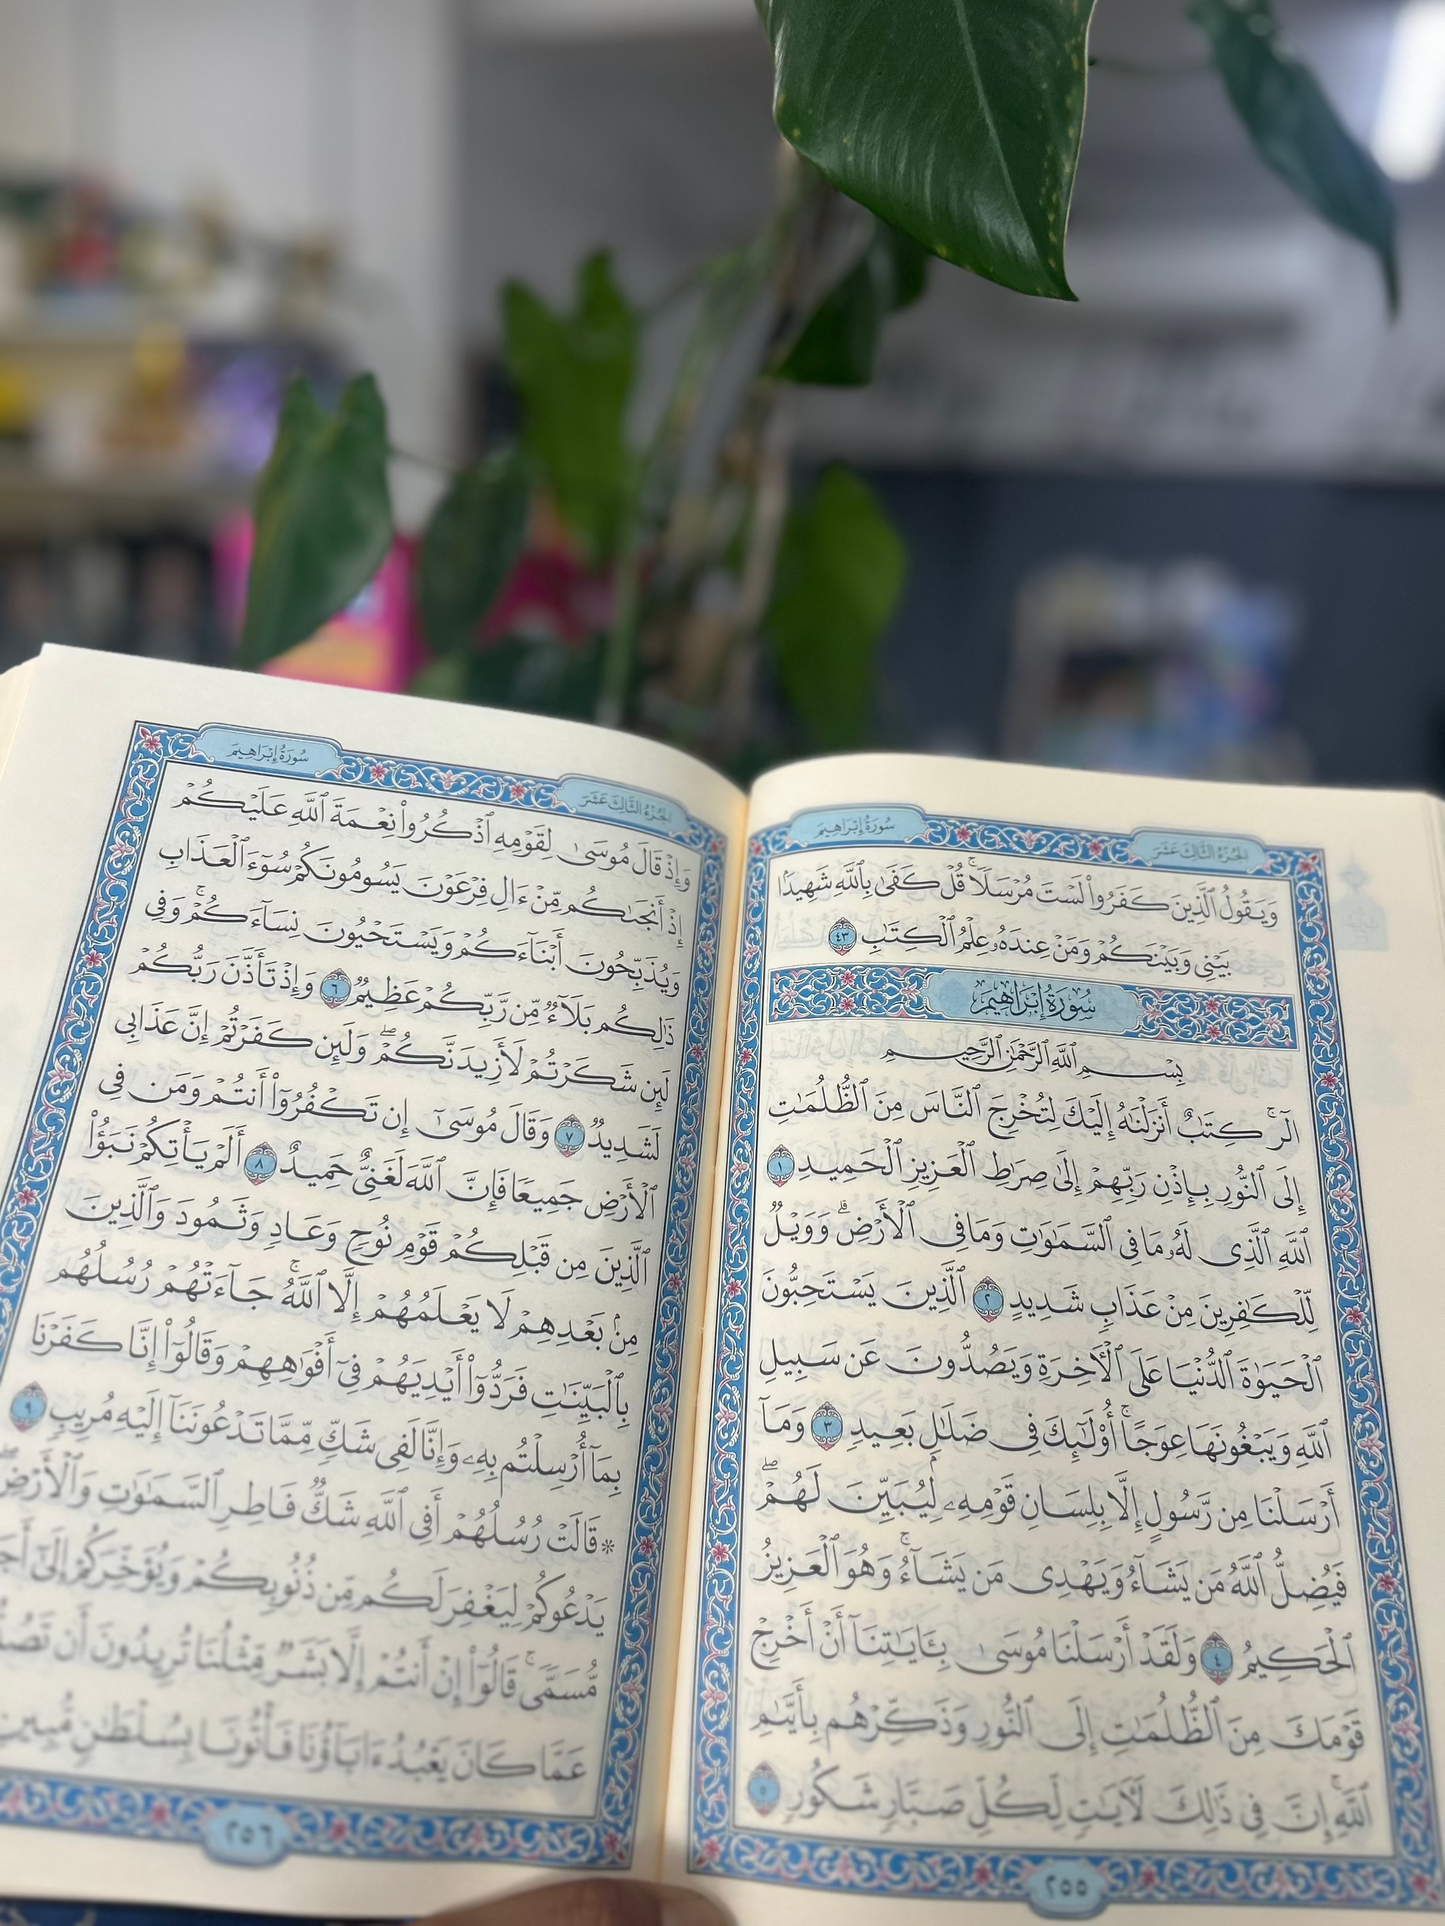 سُورَةُ إِبْرَاهِيمَ
الجُزْءُ الثَّالِثَ عَشَرَ
وَيَقُولُ ٱلَّذِينَ كَفَرُوا۟ لَسْتَ مُرْسَلًا ۚ قُلْ كَفَىٰ بِٱللَّهِ شَهِيدًۢا
بَيْنِى وَبَيْنَكُمْ وَمَنْ عِندَهُۥ عِلْمُ ٱلْكِتَٰبِ ٤٣
سُورَةُ إِبْرَاهِيمَ
بِسْمِ ٱللَّهِ ٱلرَّحْمَٰنِ ٱلرَّحِيمِ
الٓر ۚ كِتَٰبٌ أَنزَلْنَٰهُ إِلَيْكَ لِتُخْرِجَ ٱلنَّاسَ مِنَ ٱلظُّلُمَٰتِ
إِلَى ٱلنُّورِ بِإِذْنِ رَبِّهِمْ إِلَىٰ صِرَٰطِ ٱلْعَزِيزِ ٱلْحَمِيدِ ١
ٱللَّهِ ٱلَّذِى لَهُۥ مَا فِى ٱلسَّمَٰوَٰتِ وَمَا فِى ٱلْأَرْضِ ۗ وَوَيْلٌ
لِّلْكَٰفِرِينَ مِنْ عَذَابٍ شَدِيدٍ ٢ ٱلَّذِينَ يَسْتَحِبُّونَ
ٱلْحَيَوٰةَ ٱلدُّنْيَا عَلَى ٱلْءَاخِرَةِ وَيَصُدُّونَ عَن سَبِيلِ
ٱللَّهِ وَيَبْغُونَهَا عِوَجًا ۚ أُو۟لَٰٓئِكَ فِى ضَلَٰلٍۭ بَعِيدٍ ٣ وَمَآ
أَرْسَلْنَا مِن رَّسُولٍ إِلَّا بِلِسَانِ قَوْمِهِۦ لِيُبَيِّنَ لَهُمْ ۖ
فَيُضِلُّ ٱللَّهُ مَن يَشَآءُ وَيَهْدِى مَن يَشَآءُ ۚ وَهُوَ ٱلْعَزِيزُ
ٱلْحَكِيمُ ٤ وَلَقَدْ أَرْسَلْنَا مُوسَىٰ بِـَٔايَٰتِنَآ أَنْ أَخْرِجْ
قَوْمَكَ مِنَ ٱلظُّلُمَٰتِ إِلَى ٱلنُّورِ وَذَكِّرْهُم بِأَيَّىٰمِ
ٱللَّهِ ۚ إِنَّ فِى ذَٰلِكَ لَءَايَٰتٍ لِّكُلِّ صَبَّارٍ شَكُورٍ ٥
٢٥٥
سُورَةُ إِبْرَاهِيمَ
الجُزْءُ الثَّالِثَ عَشَرَ
وَإِذْ قَالَ مُوسَىٰ لِقَوْمِهِ ٱذْكُرُوا۟ نِعْمَةَ ٱللَّهِ عَلَيْكُمْ
إِذْ أَنجَىٰكُم مِّنْ ءَالِ فِرْعَوْنَ يَسُومُونَكُمْ سُوٓءَ ٱلْعَذَابِ
وَيُذَبِّحُونَ أَبْنَآءَكُمْ وَيَسْتَحْيُونَ نِسَآءَكُمْ ۚ وَفِى
ذَٰلِكُم بَلَآءٌ مِّن رَّبِّكُمْ عَظِيمٌ ٦ وَإِذْ تَأَذَّنَ رَبُّكُمْ
لَئِن شَكَرْتُمْ لَأَزِيدَنَّكُمْ ۖ وَلَئِن كَفَرْتُمْ إِنَّ عَذَابِى
لَشَدِيدٌ ٧ وَقَالَ مُوسَىٰٓ إِن تَكْفُرُوٓا۟ أَنتُمْ وَمَن فِى
ٱلْأَرْضِ جَمِيعًا فَإِنَّ ٱللَّهَ لَغَنِىٌّ حَمِيدٌ ٨ أَلَمْ يَأْتِكُمْ نَبَؤُا۟
ٱلَّذِينَ مِن قَبْلِكُمْ قَوْمِ نُوحٍ وَعَادٍ وَثَمُودَ وَٱلَّذِينَ
مِنۢ بَعْدِهِمْ لَا يَعْلَمُهُمْ إِلَّا ٱللَّهُ ۚ جَآءَتْهُمْ رُسُلُهُم
بِٱلْبَيِّنَٰتِ فَرَدُّوٓا۟ أَيْدِيَهُمْ فِىٓ أَفْوَٰهِهِمْ وَقَالُوٓا۟ إِنَّا كَفَرْنَا
بِمَآ أُرْسِلْتُم بِهِۦ وَإِنَّا لَفِى شَكٍّ مِّمَّا تَدْعُونَنَآ إِلَيْهِ مُرِيبٍ ٩
* قَالَتْ رُسُلُهُمْ أَفِى ٱللَّهِ شَكٌّ فَاطِرِ ٱلسَّمَٰوَٰتِ وَٱلْأَرْضِ ۖ
يَدْعُوكُمْ لِيَغْفِرَ لَكُم مِّن ذُنُوبِكُمْ وَيُؤَخِّرَكُمْ إِلَىٰٓ
مُّسَمًّى ۚ قَالُوٓا۟ إِنْ أَنتُمْ إِلَّا بَشَرٌ مِّثْلُنَا تُرِيدُونَ أَن
عَمَّا كَانَ يَعْبُدُ ءَابَآؤُنَا فَأْتُونَا بِسُلْطَٰنٍ مُّبِينٍ
٢٥٦